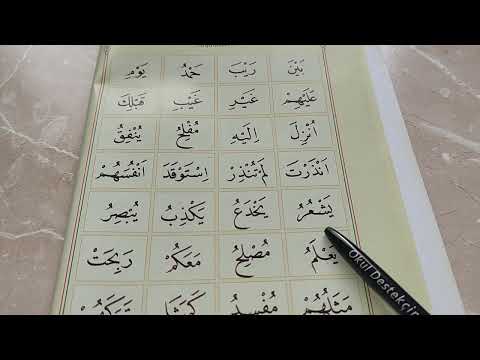 بَيْنَ رَيْبَ حَمْدُ يَوْمِ
عَلَيْهِمْ غَيْرِ غَيْبِ قَبْلِكَ
اُنْزِلَ اِلَيْهِ مُفْلِحُ يُنْفِقُ
اَنْذَرْتَ لَمْ تُنْذِرْ اِسْتَوْقَدَ اَنْفُسَهُمْ
يَشْعُرُ يَخْدَعُ يَكْذِبُ يُبْصِرُ
يَعْلَمُ مُصْلِحُ مَعَكُمْ رَبِحَتْ
مَثَلُهُمْ مُفْسِدُ
OKUL Destekçim